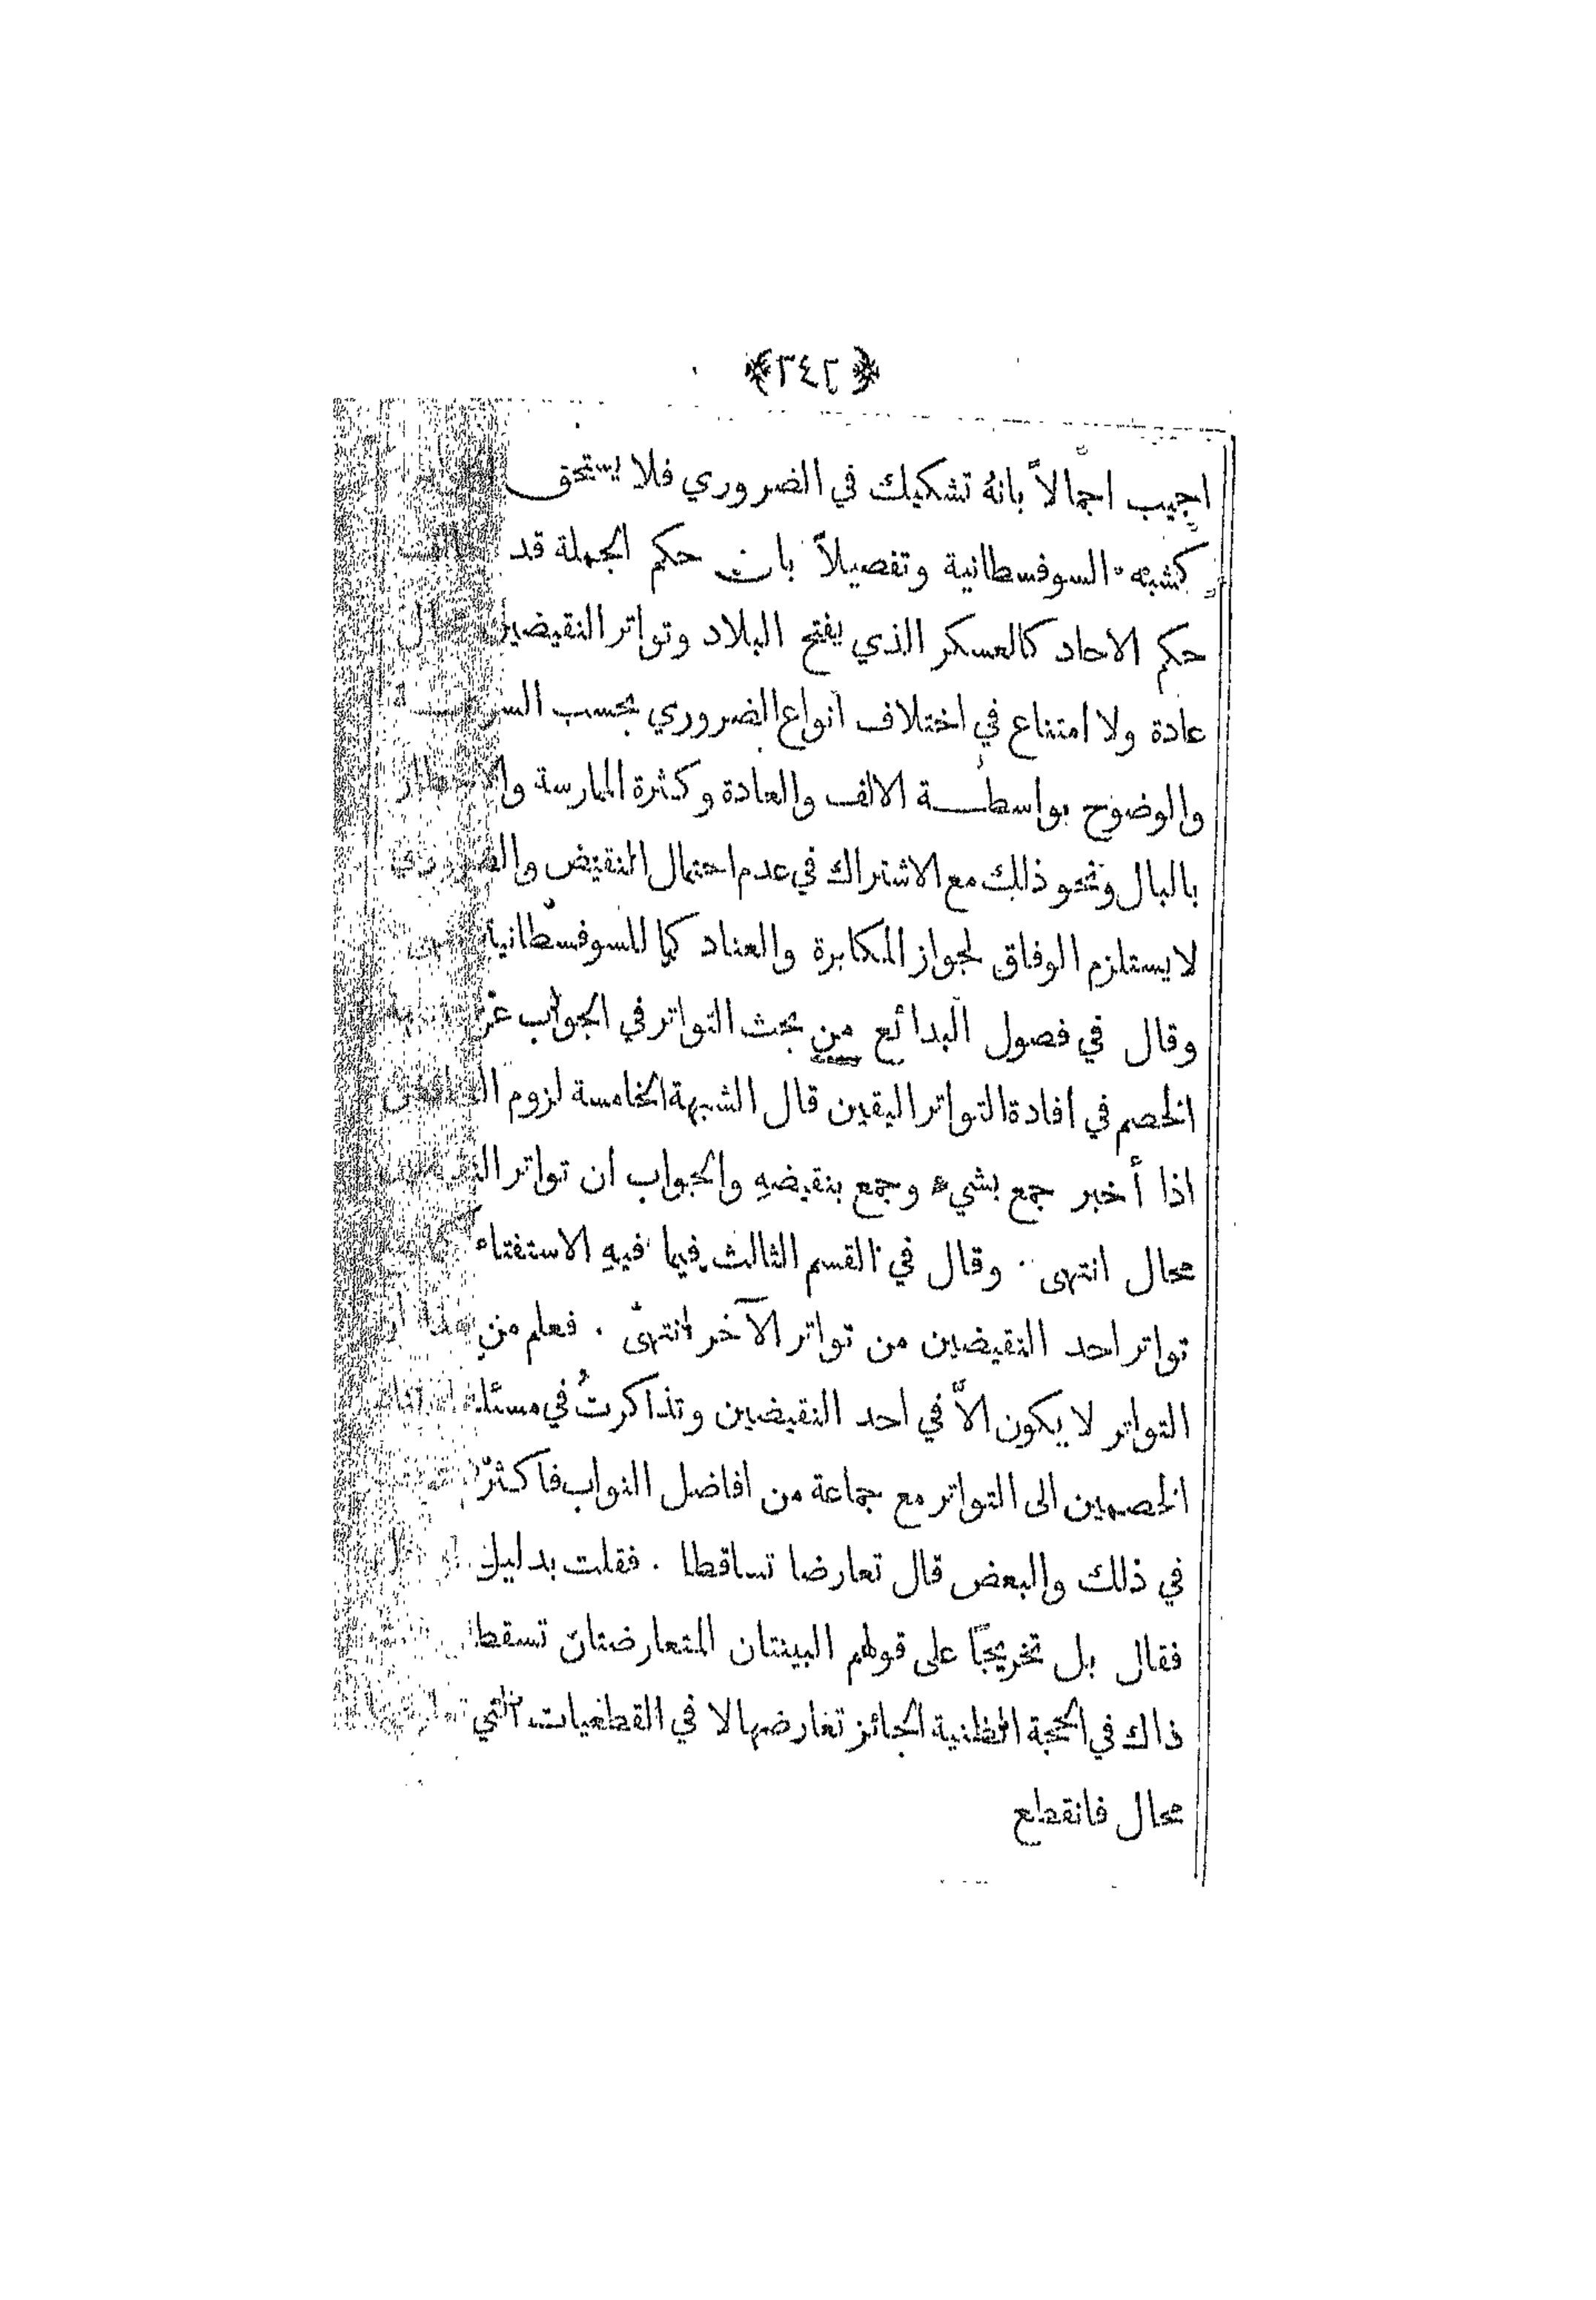 ﴿٣٤٢﴾
اجيب اجمالاً بانهُ تشكيك في الضروري فلا يستحق
كشبه السوفسطانية وتفصيلاً بان حكم الجملة قد
حكم الاحاد كالعسكر الذي يفتح البلاد وتواتر النقيضين
عادة ولا امتناع في اختلاف انواع الضروري بحسب
والوضوح بواسطة الالف والعادة وكثرة الممارسة
بالبال ونحو ذلك مع الاشتراك في عدم احتمال النقيض
لا يستلزم الوفاق لجواز المكابرة والعناد كما للسوفسطانية
وقال في فصول البدائع من بحث التواتر في الجواب عن
الخصم في افادة التواتر اليقين قال الشبهة الخامسة لزوم
اذا أخبر جمع بشيء وجمع بنقيضهِ والجواب ان تواتر
محال انتهى . وقال في القسم الثالث فيما فيهِ الاستفتاء
تواتر احد النقيضين من تواتر الآخر انتهى . فعلم من
التواتر لا يكون الاَّ في احد النقيضين وتذاكرتُ في مسئلة
الخصمين الى التواتر مع جماعة من افاضل النواب فاكثر
في ذلك والبعض قال تعارضا تساقطا . فقلت بدليل
فقال بل تخريجًا على قولهم البينتان المتعارضتان
ذاك في الحجة الظنية الجائز تعارضها لا في القطعيات التي
محال فانقطع